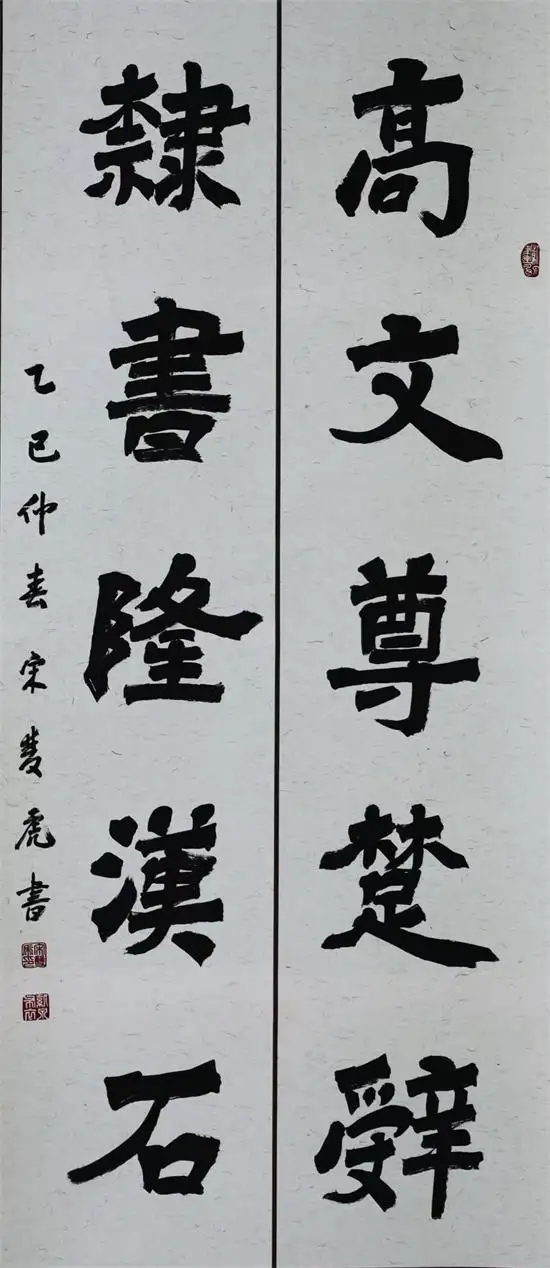 高文尊楚辤
隸書隆漢石
乙巳仲春宋雙虎書